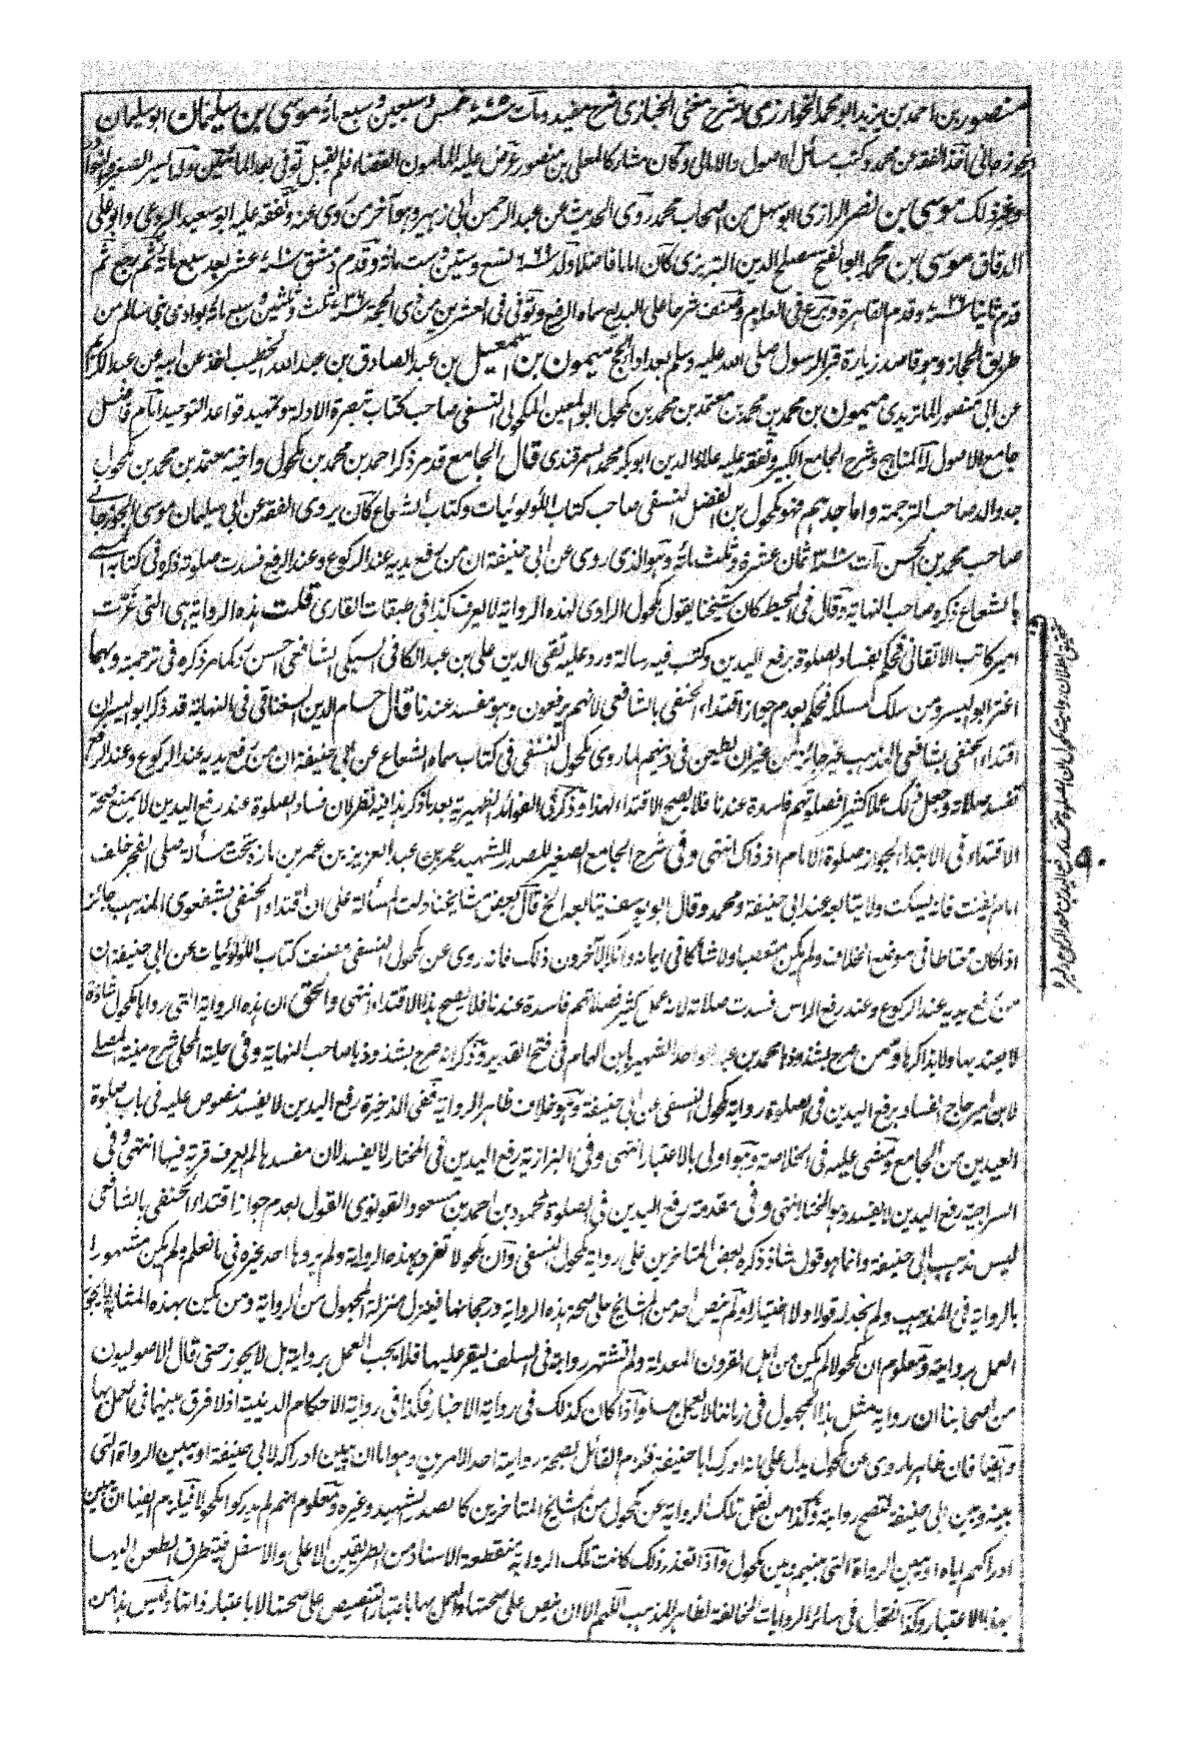 منصور بن احمد بن يزيد ابو محمد الخوارزمى له شرح مغنى الخبازى شرح مفيد ومات ٧٧٥ خمس وسبعين وسبع مائة موسى بن سليمان ابو سليمان
الجوزجانى اخذ الفقه عن محمد وكتب مسائل الاصول والامالى وكان مشاركا لمعلى بن منصور عرض عليه المامون القضاء فلم يقبل توفى بعد المائتين وله السير الصغير والنوادر
وغير ذلك موسى بن نصر الرازى ابو سهل من اصحاب محمد روى الحديث عن عبد الرحمن ابى زهير وهو آخر من روى عنه وتفقه عليه ابو سعيد البردعى وابو على
الدقاق موسى بن محمد ابو الفتح مصلح الدين التبريزى كان اماما فاضلا ولد ٦٦٩ تسع وستين وست مائة وقدم دمشق ٧١٠ عشر بعد سبع مائة ثم رجع ثم
قدم ثانيا وقدم القاهرة وبرع فى العلوم وصنف شرحا على البديع سماه الرفيع وتوفى فى العشرين من ذى الحجة ٧٣٦ وثلثين وسبع مائة بوادى بنى سالم من
طريق الحجاز وهو قاصد زيارة قبر الرسول صلى الله عليه وسلم بعد اداء الحج ميمون بن اسمعيل بن عبد الصادق بن عبد الله الخطيب اخذ عن ابيه عن عبد الكريم
عن ابى منصور الماتريدى ميمون بن محمد بن محمد بن معتمد بن محمد بن مكحول ابو المعين المكحولى النسفى صاحب كتاب تبصرة الادلة وتمهيد قواعد التوحيد امام فاضل
جامع الاصول له المناهج وشرح الجامع الكبير وتفقه عليه علاء الدين ابو بكر محمد السمرقندى قال الجامع قد مر ذكر احمد بن محمد بن مكحول واخيه معتمد بن محمد بن مكحول
جد والد صاحب الترجمة واما جدهم فهو مكحول بن الفضل النسفى صاحب كتاب اللؤلؤئيات وكتاب الشعاع كان يروى الفقه عن ابى سليمان موسى الجوزجانى
صاحب محمد بن الحسن مات ٣١٨ ثمان عشرة وثلث مائة وهو الذى روى عن ابى حنيفة ان من رفع يديه عند الركوع وعند الرفع فسدت صلوته ذكره فى كتابه المسمى
بالشعاع ذكره صاحب النهاية وقال فى المحيط كان شيخنا يقول مكحول الراوى لهذه الرواية لا يعرف كذا فى طبقات القارى قلت هذه الرواية هى التى غرت
امير كاتب الاتقانى فحكم بفساد الصلوة برفع اليدين وكتب فيه رسالة ورد عليه تقى الدين على بن عبد الكافى السبكى الشافعى احسن رد كما مر ذكره فى ترجمته وبهما
اغتر ابو اليسر ومن سلك مسلكه فحكم بعدم جواز اقتداء الحنفى بالشافعى لانهم يرفعون وهو مفسد عندنا قال حسام الدين السغناقى فى النهاية قد ذكر ابو اليسر ان
اقتداء الحنفى بشافعى المذهب غير جائز من غير ان يطعن فى دينهم لما روى مكحول النسفى فى كتاب سماه الشعاع عن ابى حنيفة ان من رفع يديه عند الركوع وعند الرفع
تفسد صلاته وجعل ذلك عملا كثيرا فصلوتهم فاسدة عندنا فلا يصح الاقتداء لهذا وذكر فى الفوائد الظهيرية بعد ما ذكر هذا فيه نظر لان فساد الصلوة عند رفع اليدين لا يمنع صحة
الاقتداء فى الابتداء لجواز صلوة الامام اذ ذاك انتهى وفى شرح الجامع الصغير للصدر الشهيد عمر بن عبد العزيز بن عمر بن مازه تحت مسألة صلى الفجر خلف
امام يقنت فانه يسكت ولا يتابعه عند ابى حنيفة ومحمد وقال ابو يوسف يتابعه الخ قال بعض مشايخنا دلت المسألة على ان اقتداء الحنفى بشفعوى المذهب جائز
اذا كان محتاطا فى موضع الخلاف ولم يكن متعصبا ولا شاكا فى ايمانه وانكر الآخرون ذلك فانه روى عن مكحول النسفى مصنف كتاب اللؤلؤئيات عن ابى حنيفة ان
من رفع يديه عند الركوع وعند رفع الراس فسدت صلاته لانه عمل كثير فصلاتهم فاسدة عندنا فلا يصح هذا الاقتداء انتهى والحق ان هذه الرواية التى رواها مكحول شاذة
لا يعتد بها ولا بذاكرها وممن صرح بشذوذها محمد بن عبد الواحد الشهير بابن الهمام فى فتح القدير وذكر انه صرح بشذوذها صاحب النهاية وفى حلية المحلى شرح منية المصلى
لابن امير حاج الفساد برفع اليدين فى الصلوة رواية مكحول النسفى عن ابى حنيفة وهو خلاف ظاهر الرواية ففى الذخيرة رفع اليدين لا يفسد منصوص عليه فى باب صلوة
العيدين من الجامع ومشى عليه فى الخلاصة وهو اولى بالاعتبار انتهى وفى البزازية رفع اليدين فى المختار لا يفسد لان مفسدها لم يعرف قربة فيها انتهى وفى
السراجية رفع اليدين لا يفسد هو المختار انتهى وفى مقدمة رفع اليدين فى الصلوة لمحمود بن احمد بن مسعود القونوى القول بعدم جواز اقتداء الحنفى بالشافعى
ليس مذهب ابى حنيفة وانما هو قول شاذ ذكره بعض المتاخرين على رواية مكحول النسفى وان مكحولا تفرد بهذه الرواية ولم يروها احد غيره فى ما نعلم ولم يكن مشهورا
بالرواية فى المذهب ولم نجد له قولا ولا اختيارا ولم ينص احد من المشايخ على صحة هذه الرواية ورجحانها فينزل منزلة المجهول من الرواية ومن يكن بهذه المثابة لا يجوز
العمل بروايته ومعلوم ان مكحولا لم يكن من اهل القرون المعدلة ولم تشتهر رواية فى السلف ليقر عليها فلا يجب العمل برواية بل لا يجوز حتى قال الاصوليون
من اصحابنا ان رواية مثل هذا المجهول فى زماننا لا يعمل بها واذا كان كذلك فى رواية الاخبار فكذا فى رواية الاحكام الدينية اذ لا فرق بينهما فى العمل بها
وايضا فان ظاهر ما روى عن مكحول يدل على انه ادرك ابا حنيفة فلزم القائل بصحة روايته احد الامرين وهو اما ان يبين ادراكه لابى حنيفة او يبين الرواة التى
بينه وبين ابى حنيفة لتصح روايته وكذا من نقل تلك الرواية عن مكحول من مشايخ المتاخرين كالصدر الشهيد وغيره ومعلوم انهم لم يدركوا مكحولا فيلزم ايضا ان يبين
ادراكهم اياه او يبين الرواة التى بينهم وبين مكحول واذا تعذر ذلك كانت تلك الرواية منقطعة الاسناد من الطريقين الاعلى والاسفل فيتطرق الطعن اليها
بهذا الاعتبار وكذا نقول فى سائر الروايات المخالفة لظاهر المذهب اللهم الا ان ينص على صحتها والعمل بها باعتبار التنصيص على صحتها لا باعتبار ذاتها وليس هذا من
٩٠